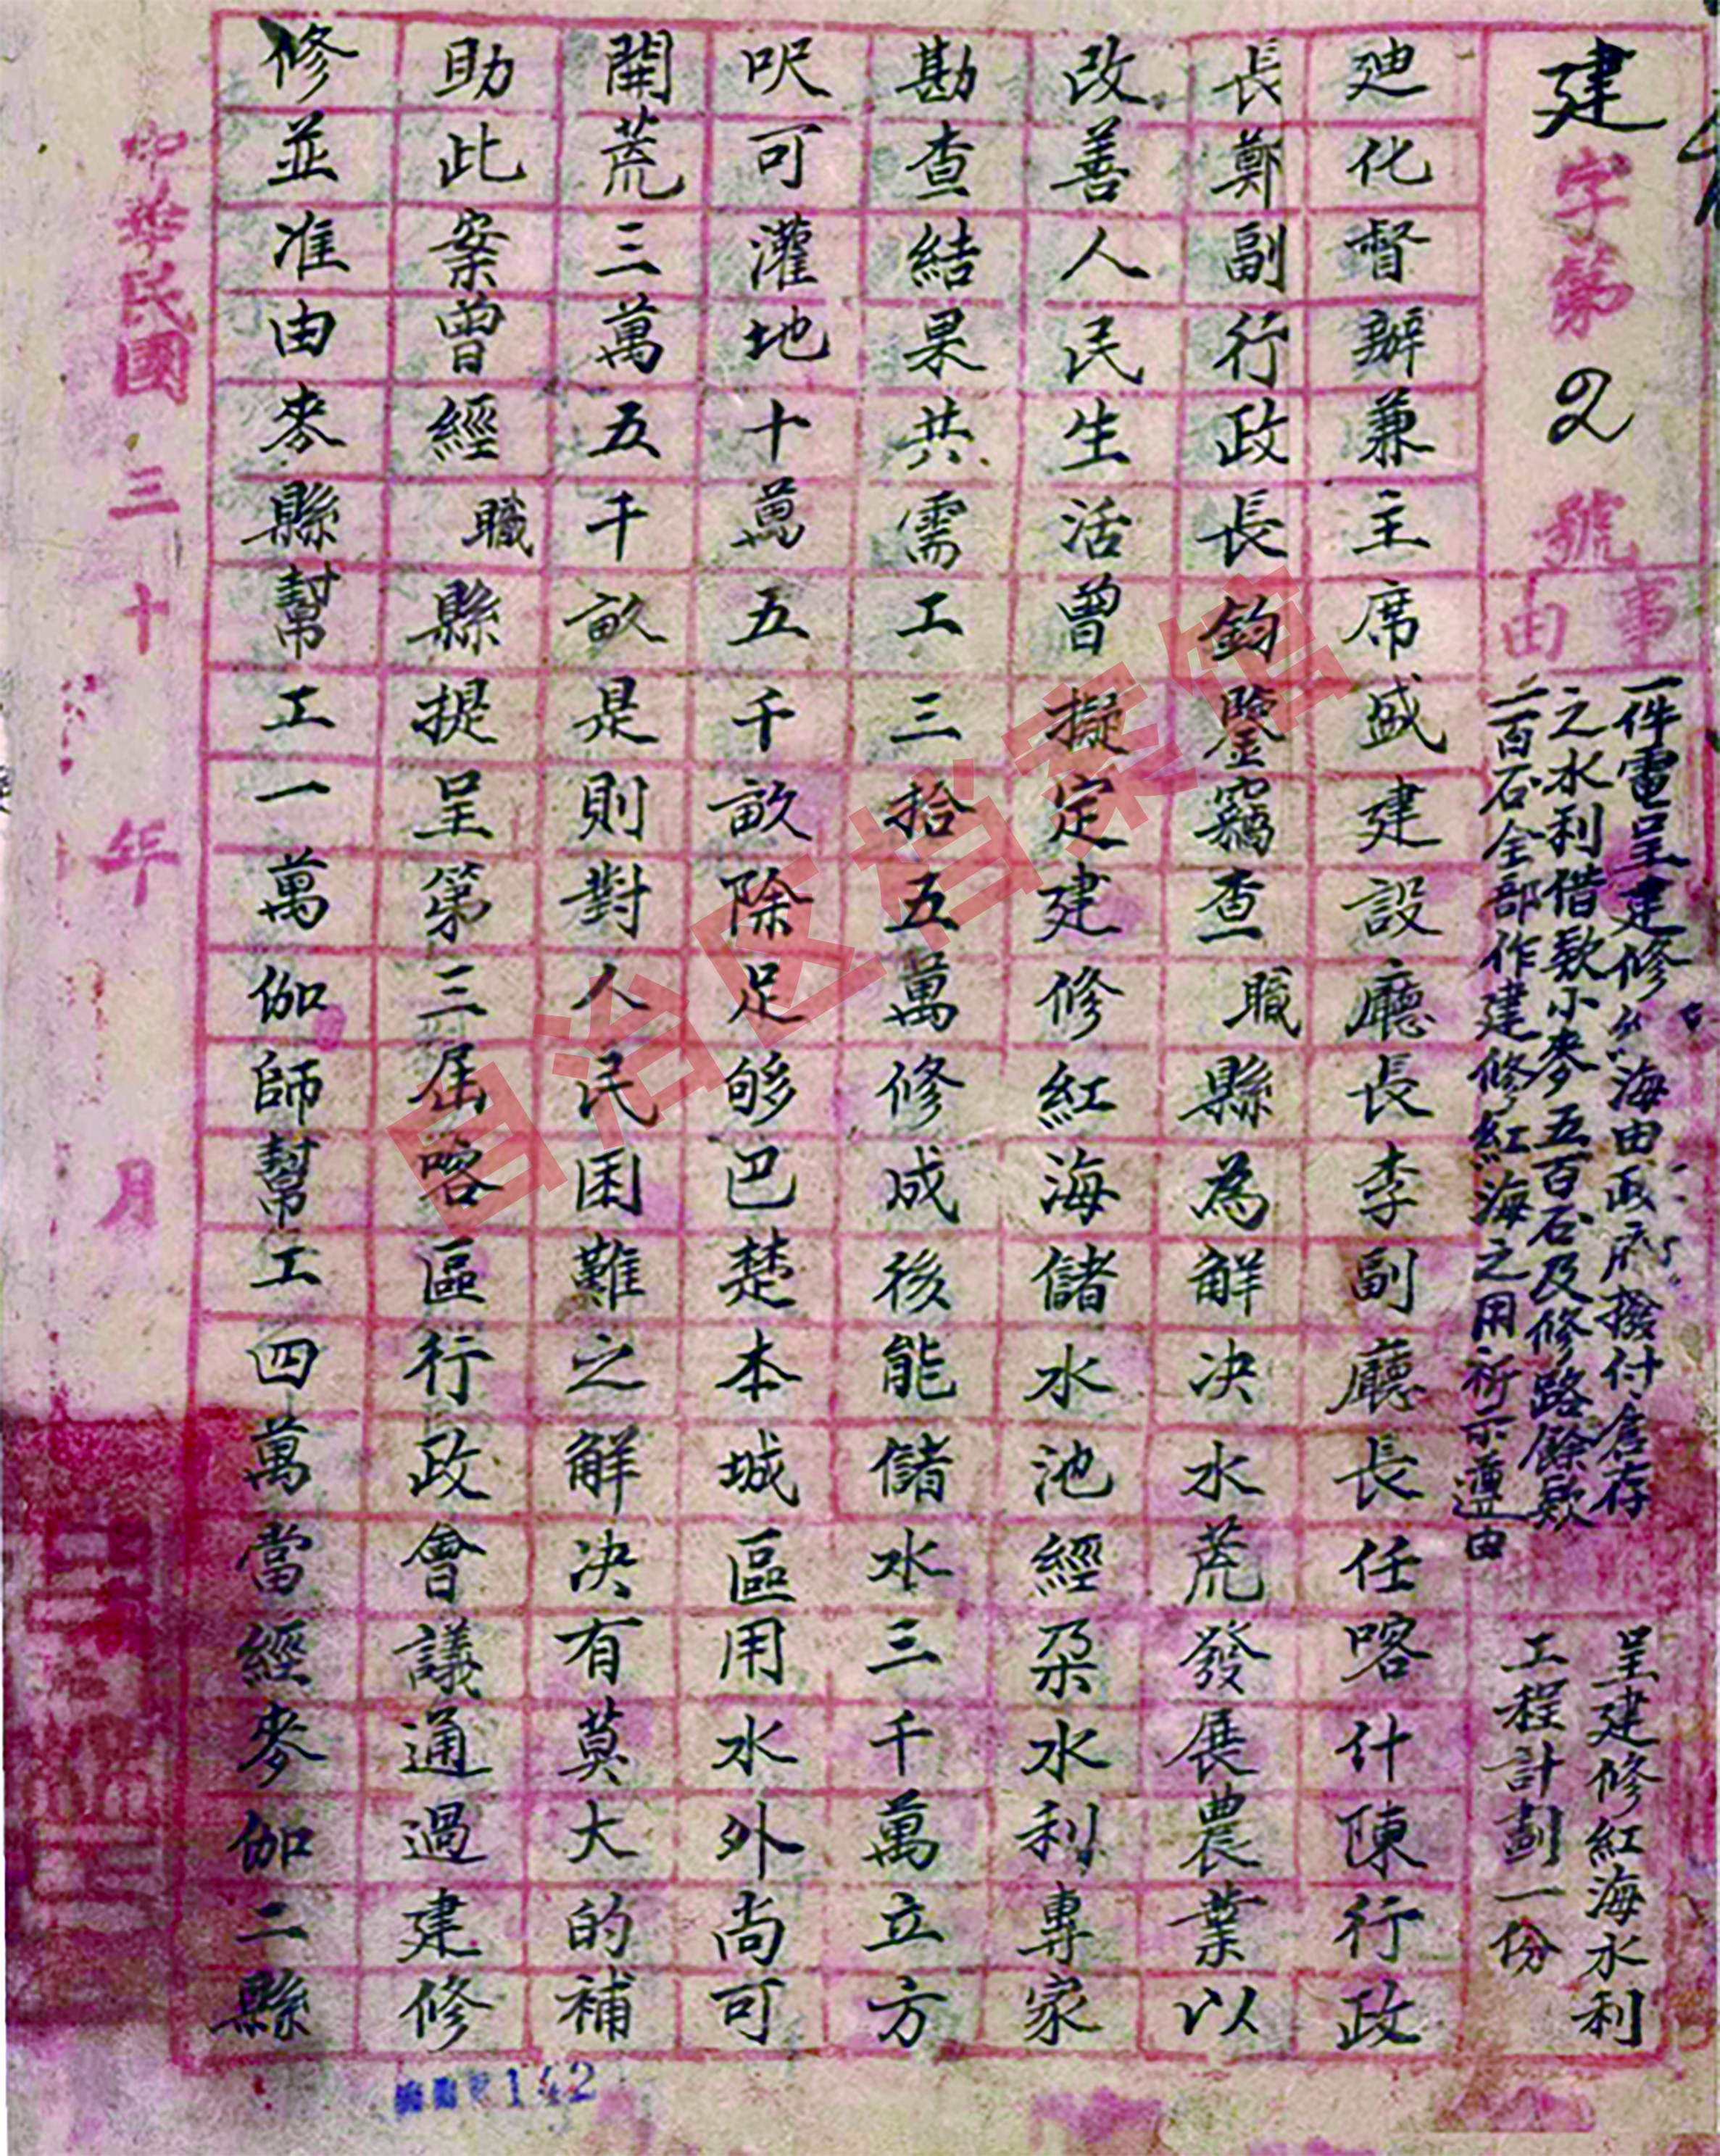 建字第2號
事由
一件電呈建修紅海由政府撥付倉存
之水利借款小麥五百石及修路餘款
二百石全部作建修紅海之用祈示遵由
呈建修紅海水利
工程計劃一份
廸化督辦兼主席盛建設廳長李副廳長任喀什陳行政
長鄭副行政長鈞鑒竊查職縣為解决水荒發展農業以
改善人民生活曾擬定建修紅海儲水池經朶水利專家
勘查結果共需工三拾五萬修成後能儲水三千萬立方
呎可灌地十萬五千畝除足够巴楚本城區用水外尚可
開荒三萬五千畝是則對人民困難之解決有莫大的補
助此案曾經職縣提呈第三屆喀區行政會議通過建修
修並准由麥縣幫工一萬伽師幫工四萬當經麥伽二縣
中華民國三十年 月
142
自治区档案馆